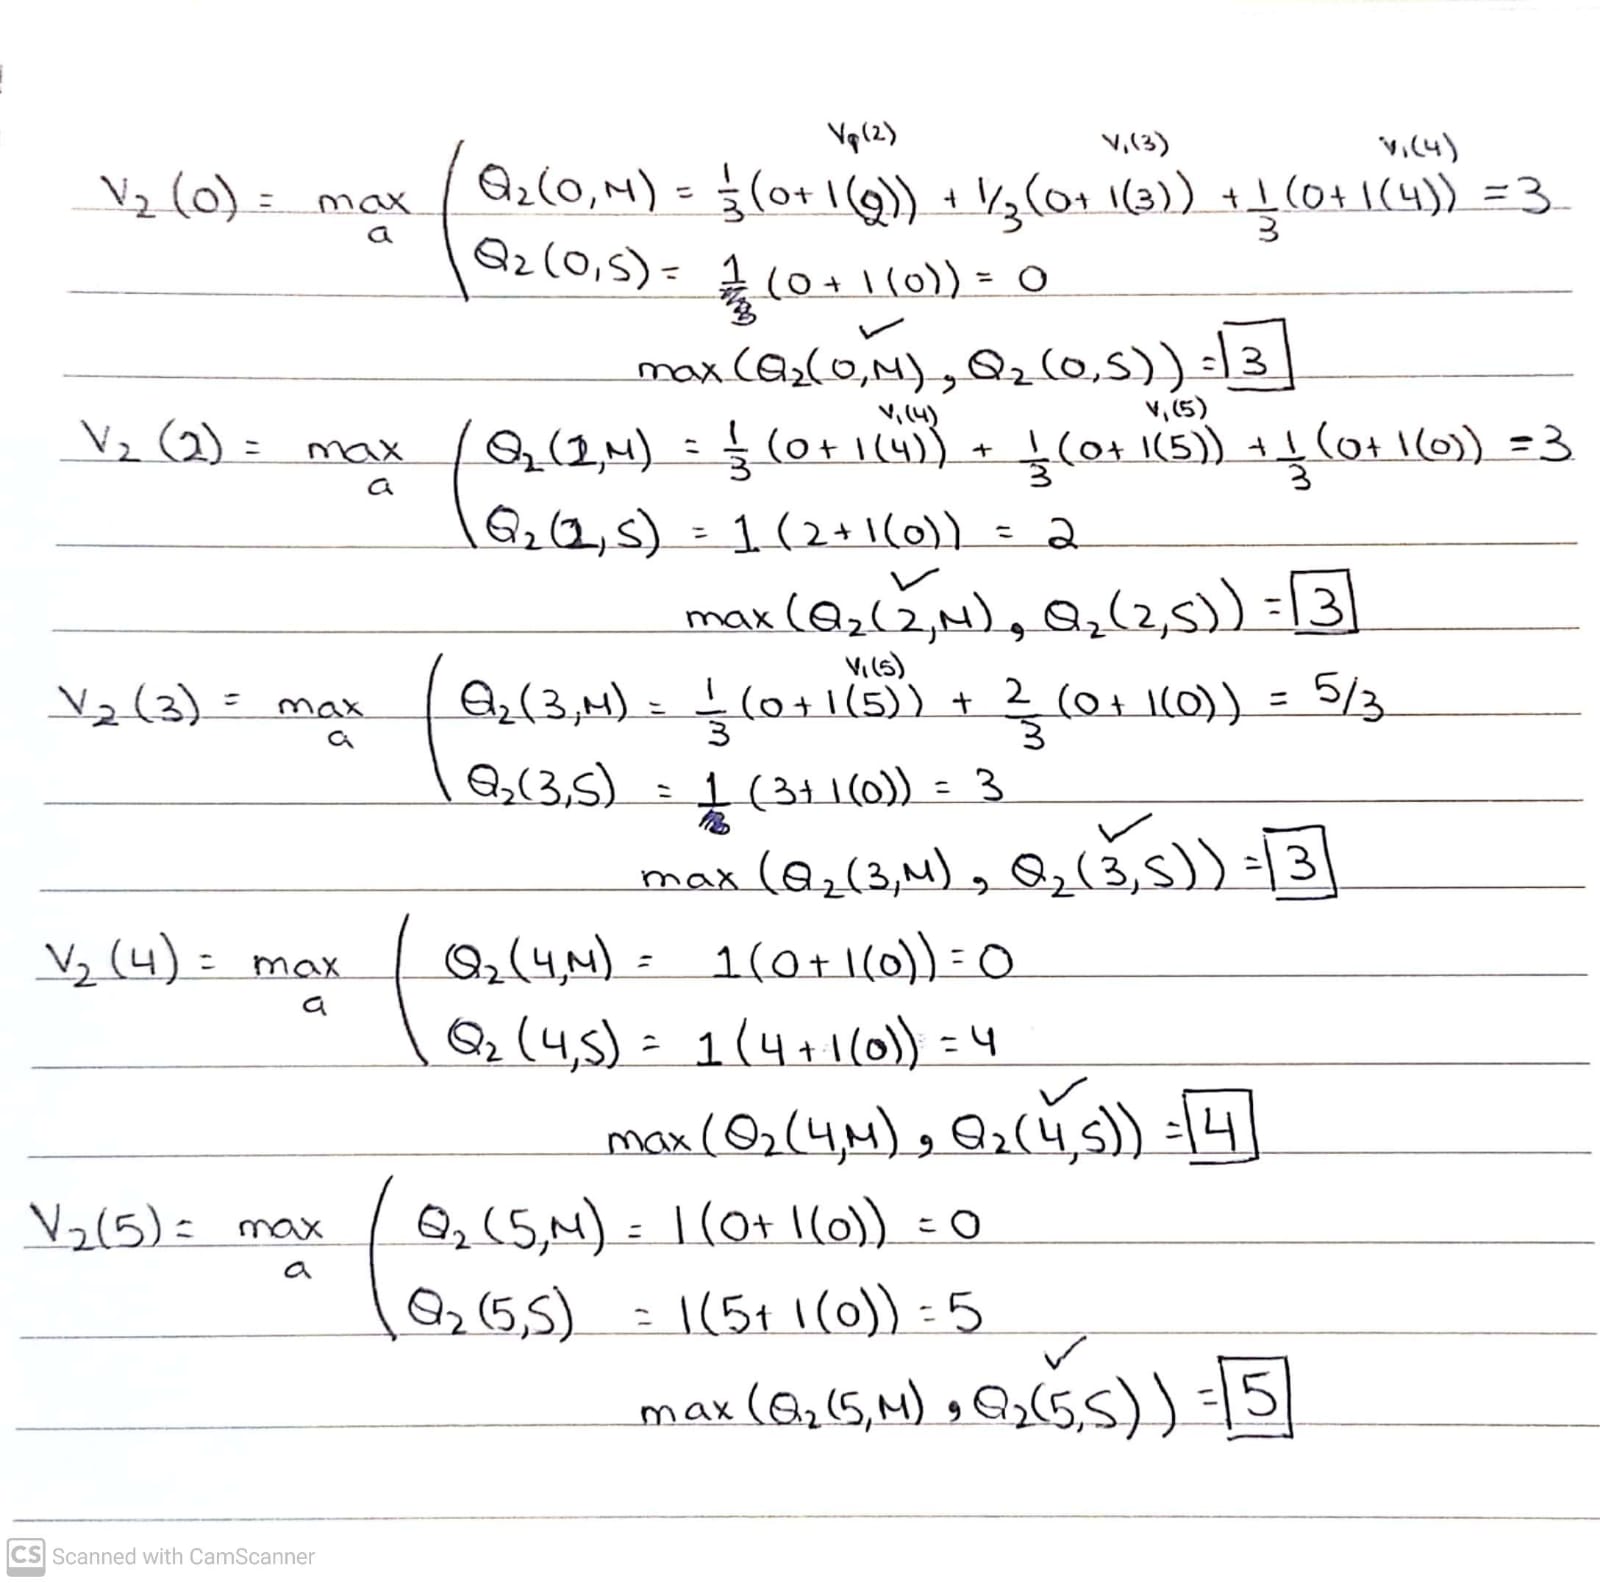 V₁(2) V₁(3) V₁(4)
V₂(0) = max ( Q₂(0,M) = 1/3 (0+1(2)) + 1/3 (0+1(3)) + 1/3 (0+1(4)) = 3
a Q₂(0,S) = 1 (0+1(0)) = 0
✓
max (Q₂(0,M), Q₂(0,S)) = 3
V₁(4) V₁(5)
V₂(2) = max ( Q₂(2,M) = 1/3 (0+1(4)) + 1/3 (0+1(5)) + 1/3 (0+1(0)) = 3
a Q₂(2,S) = 1 (2+1(0)) = 2
✓
max (Q₂(2,M), Q₂(2,S)) = 3
V₁(5)
V₂(3) = max ( Q₂(3,M) = 1/3 (0+1(5)) + 2/3 (0+1(0)) = 5/3
a Q₂(3,S) = 1 (3+1(0)) = 3
✓
max (Q₂(3,M), Q₂(3,S)) = 3
V₂(4) = max ( Q₂(4,M) = 1(0+1(0)) = 0
a Q₂(4,S) = 1(4+1(0)) = 4
✓
max (Q₂(4,M), Q₂(4,S)) = 4
V₂(5) = max ( Q₂(5,M) = 1(0+1(0)) = 0
a Q₂(5,S) = 1(5+1(0)) = 5
✓
max (Q₂(5,M), Q₂(5,S)) = 5
CS Scanned with CamScanner